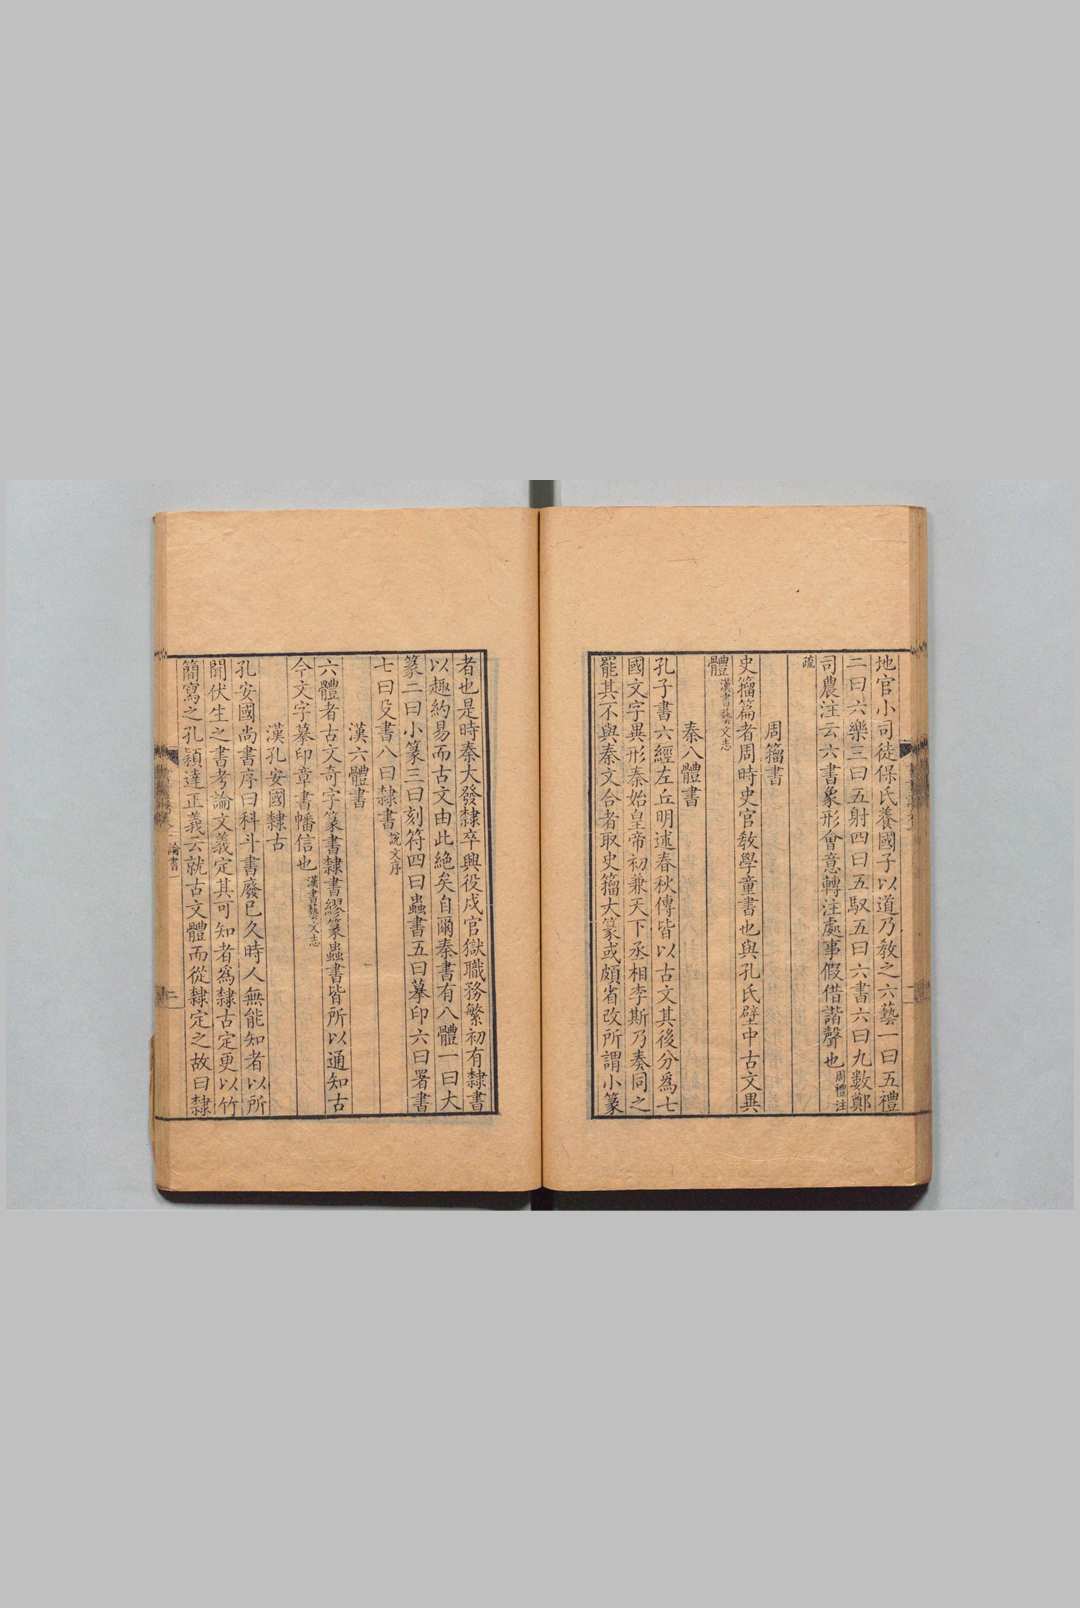 地官小司徒保氏養國子以道乃教之六藝一曰五禮
二曰六樂三曰五射四曰五馭五曰六書六曰九數鄭
司農注云六書象形會意轉注處事假借諧聲也周禮注
疏
周籀書
史籀篇者周時史官教學童書也與孔氏壁中古文異
體漢書藝文志
秦八體書
孔子書六經左丘明述春秋傳皆以古文其後分為七
國文字異形秦始皇帝初兼天下丞相李斯乃奏同之
罷其不與秦文合者取史籀大篆或頗省改所謂小篆
者也是時秦大發隸卒興役戍官獄職務繁初有隸書
以趣約易而古文由此絶矣自爾秦書有八體一曰大
篆二曰小篆三曰刻符四曰蟲書五曰摹印六曰署書
七曰殳書八曰隸書說文序
漢六體書
六體者古文奇字篆書隸書繆篆蟲書皆所以通知古
今文字摹印章書幡信也漢書藝文志
漢孔安國隸古
孔安國尚書序曰科斗書廢已久時人無能知者以所
聞伏生之書考論文義定其可知者為隸古定更以竹
簡寫之孔穎達正義云就古文體而從隸定之故曰隸
論書
二